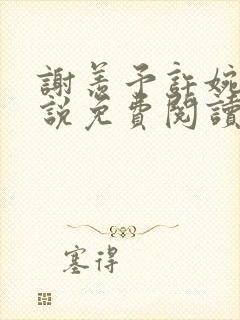 謝羨予許婉
説免費閱讀
塞得